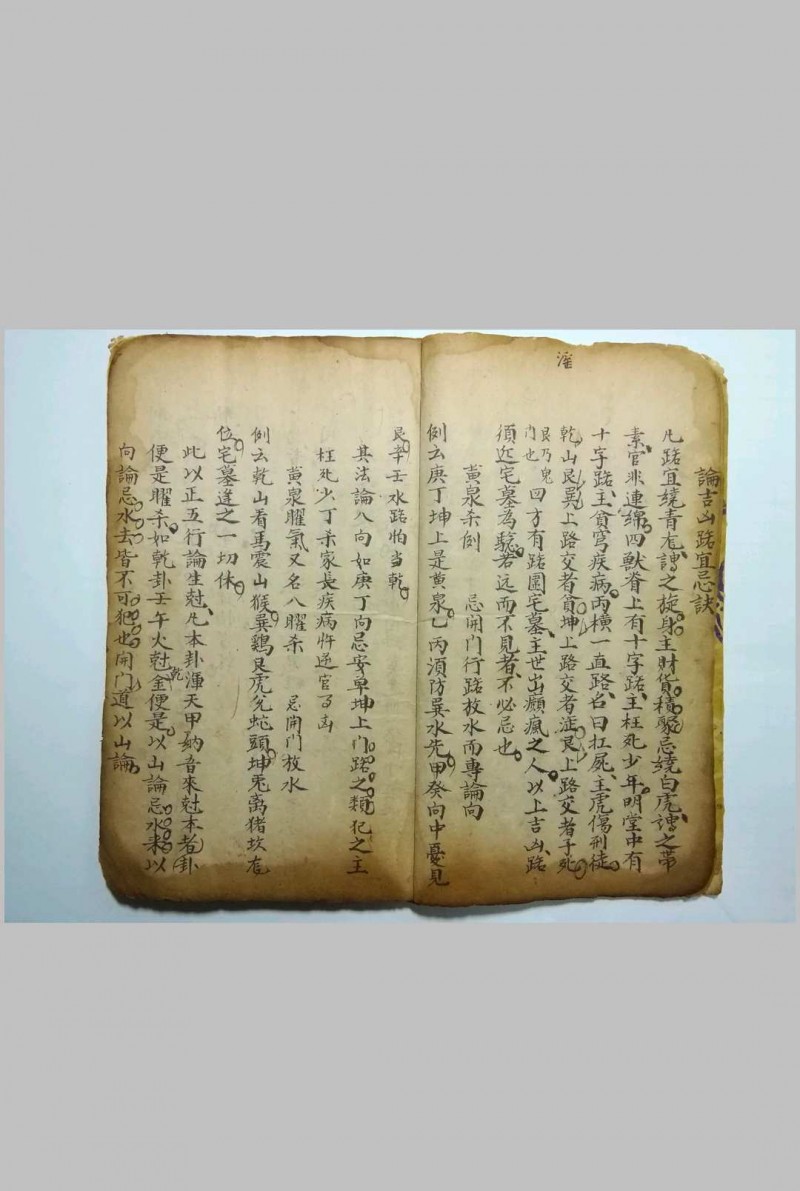 滛
論吉凶路宜忌訣
凡路宜繞青龙、謂之旋身、主財貨積聚、忌繞白虎、謂之帶
素、官非連綿、四獸脊上有十字路、主枉死少年、明堂中有
十字路、主貧窮疾病、两横一直路、名曰扛屍、主虎傷刑徒、
乾山艮巽上路交者貧、坤上路交者滛、艮上路交者子死
艮乃鬼
门也
四方有路圍宅墓、主世出癲瘋之人、以上吉凶路
須近宅墓為騐、若远而不見者、不必忌也、
黄泉杀例 忌開門行路放水而專論向
例云庚丁坤上是黄泉、乙丙須防巽水先、甲癸向中憂見
艮、辛壬水路怕当乾、
其法論八向如庚丁向忌安单坤上门路之類、犯之主
枉死少丁杀家長疾病忤逆官司凶
黄泉曜氣又名八曜杀 忌開门放水
例云乾山看馬震山猴、巽鷄艮虎兌蛇頭、坤兎离猪坎龙
位、宅墓逢之一切休、
此以正五行論生尅、凡本卦渾天甲納音來尅本卦者
便是曜杀、如乾卦壬午火尅乾金便是、以山論忌水来以
向論忌水去皆不可犯也開门道以山論、